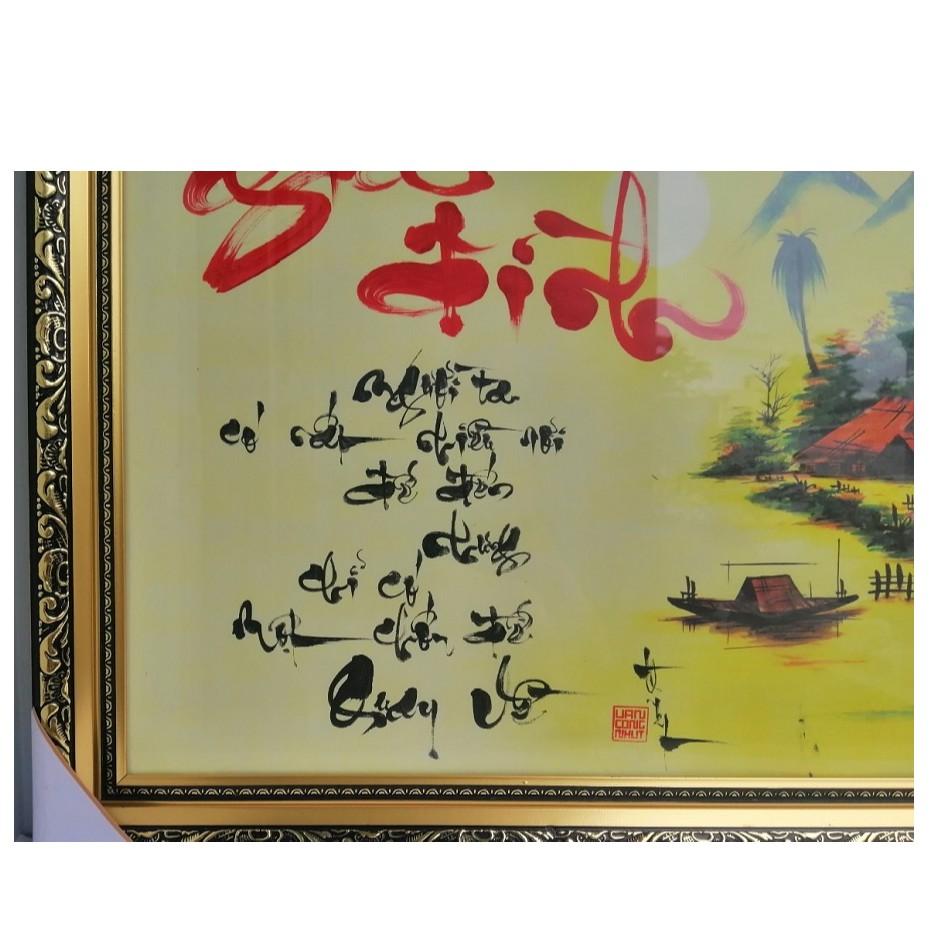 Gia
đình
Người ta
có rất nhiều nơi
để đến
nhưng
chỉ có
một chốn để
Quay về
VAN
CONG
NHUT